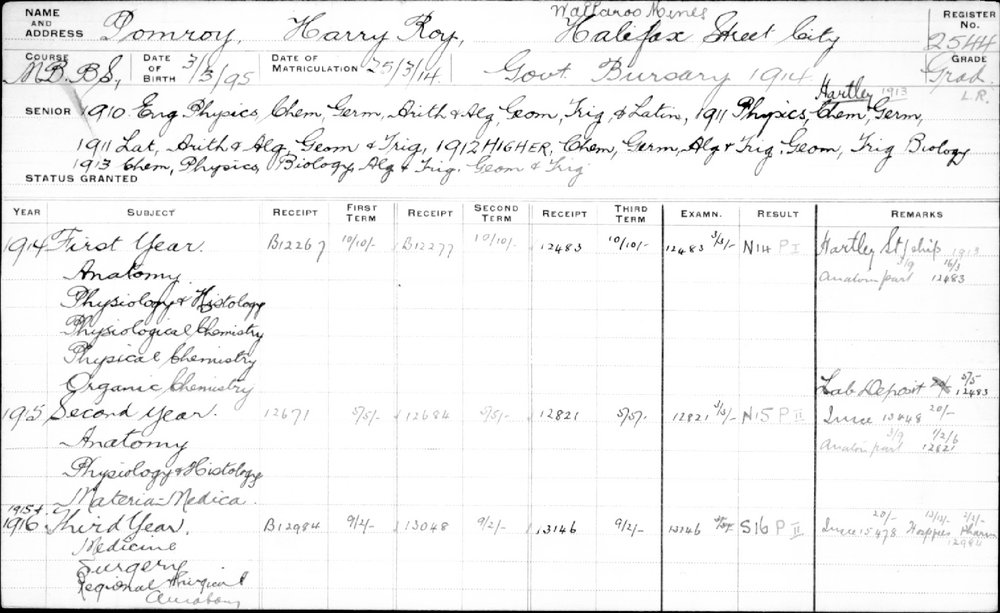 NAME AND ADDRESS Pomroy, Harry Roy, Wallaroo Mines Halifax Street City REGISTER No. 2544
COURSE M.B. B.S., DATE OF BIRTH 3/3/95 DATE OF MATRICULATION 25/3/14 Govt. Bursary 1914 GRADE Grad.
Hartley 1913 L.R.
SENIOR 1910 Eng, Physics, Chem, Germ, Arith & Alg, Geom, Trig, & Latin, 1911 Physics, Chem, Germ,
1911 Lat, Arith & Alg, Geom & Trig, 1912 HIGHER, Chem, Germ, Alg & Trig, Geom, Trig Biology
1913 Chem, Physics, Biology, Alg & Trig. Geom & Trig
STATUS GRANTED
YEAR SUBJECT RECEIPT FIRST TERM RECEIPT SECOND TERM RECEIPT THIRD TERM EXAMN. RESULT REMARKS
1914 First Year. B12267 10/10/- B12277 10/10/- 12483 10/10/- 12483 3/3/- N14 P I Hartley St/ship 1913
Anatomy Anatom part 3/9 16/3 12483
Physiology & Histology
Physiological Chemistry
Physical Chemistry
Organic Chemistry Lab Deposit 5/5 12483
1915 Second Year. 12671 5/5/- 12684 5/5/- 12821 5/5/- 12821 3/3/- N15 P II 20/-
Anatomy Anatom part 3/9 1/2/6 12821
Physiology & Histology
Materia-Medica.
1915 +
1916 Third Year. B12984 9/2/- 13048 9/2/- 13146 9/2/- 13146 S16 P II 20/- 15478
Medicine
Surgery
Regional & Surgical
Anatomy